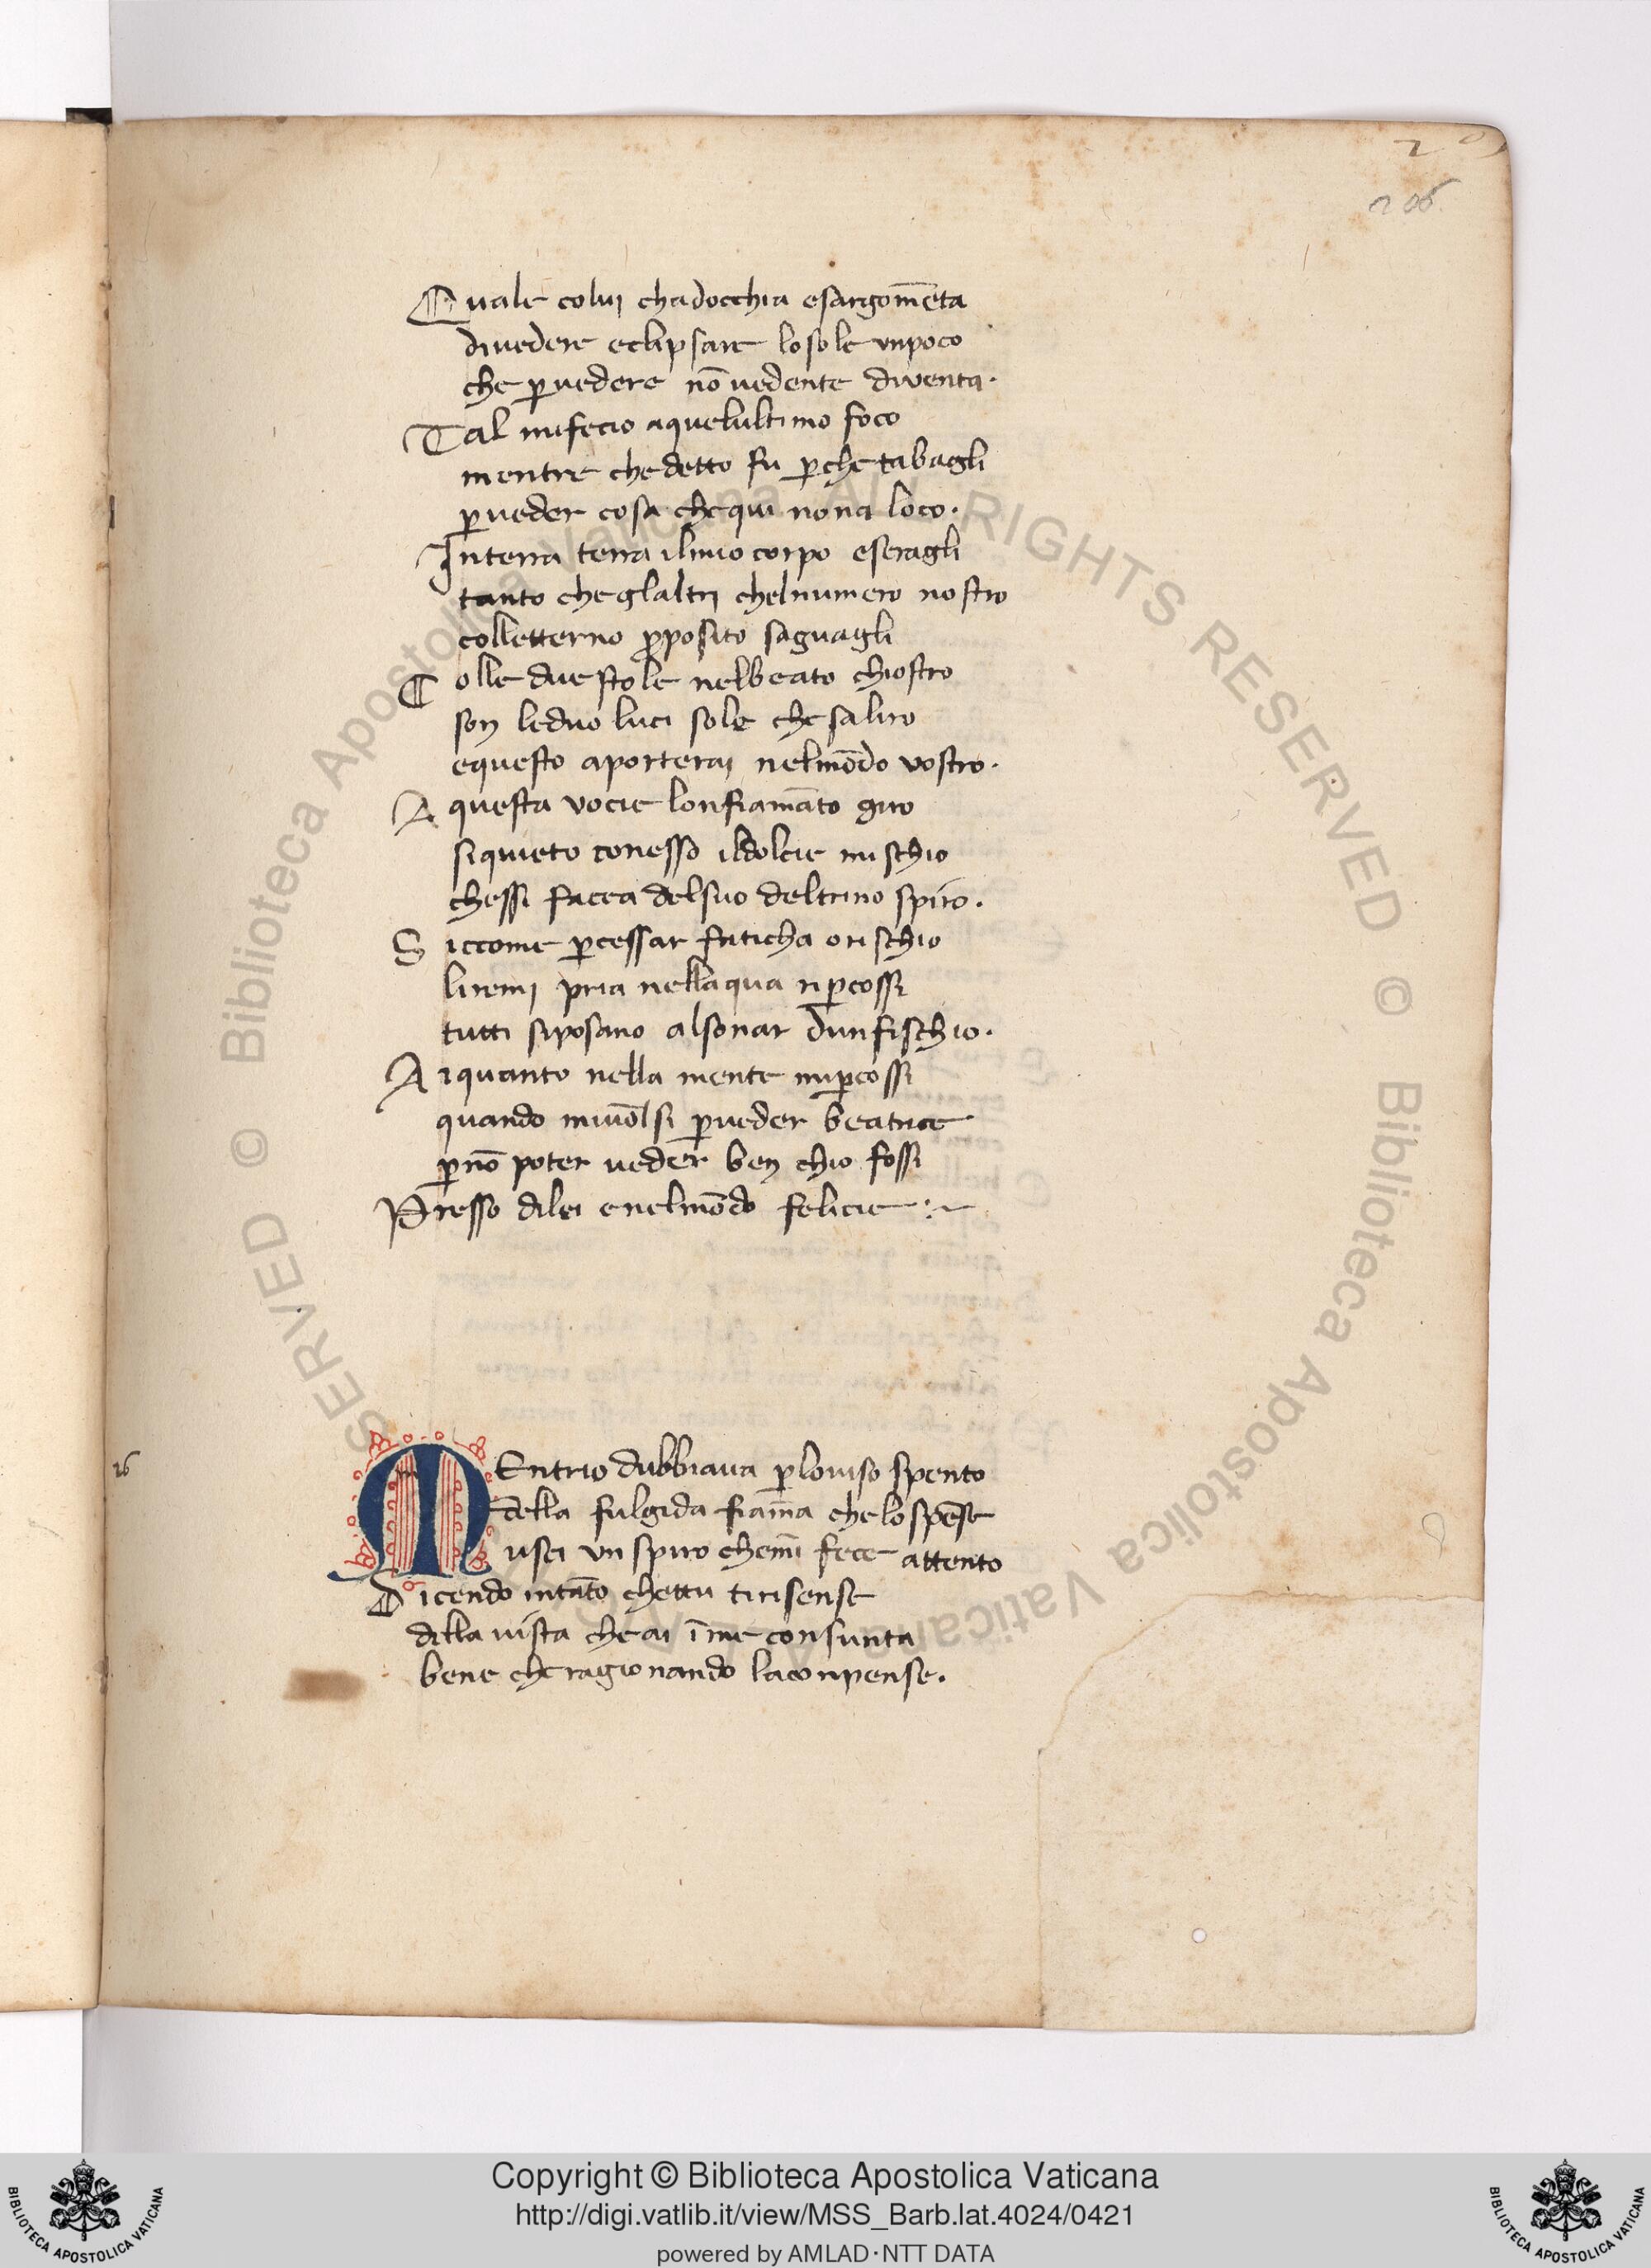 206
Quale colui chadocchia esargom̄eta
diuedere eclipsare losole unpoco
che p̱uedere nō uedente diuenta.
Tal mifecio aquelultimo foco
mentre chedetto fu p̱che tabagli
p̱ueder cosa chequi nona loco.
Interra terra ilmio corpo eseragli
tanto cheglaltri chelnumero nostro
colletterno p̱posito saguagli
Colle due stole nelbeato chiostro
son leduo luci sole chesaliro
equesto aporterai nelmōdo vostro.
A questa vocie lonfiamāto giro
siquieto conesso ildolcie mischio
chessi facea delsuo deltrino spiro.
Siccome p̱cessar faticha orischio
liremi pria nellaqua rip̱cossi
tutti siposano alsonar dunfischio.
Aiquanto nella mente mip̱cossi
quando miuolsi p̱ueder beatrice
p̱nō poter ueder ben chio fossi
Presso dilei enelmōdo felicie
26
MEntrio dubbiaua p̱louiso spento
della fulgida fiam̄a chelo spēse
usci un spiro chem̄i fece attento
Dicendo intāto chettu tirisense
della uista cheai ī me consunta
bene cheragionando laconpense.
© Biblioteca Apostolica Vaticana ALL RIGHTS RESERVED © Biblioteca Apostolica Vaticana
Copyright © Biblioteca Apostolica Vaticana
http://digi.vatlib.it/view/MSS_Barb.lat.4024/0421
powered by AMLAD·NTT DATA
BIBLIOTECA APOSTOLICA VATICANA
BIBLIOTECA APOSTOLICA VATICANA